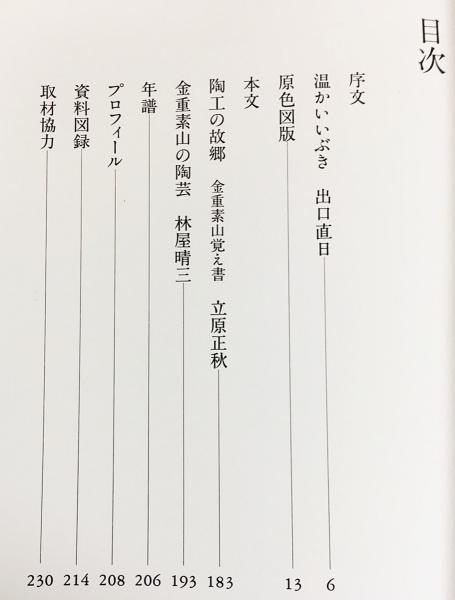 目次
序文
温かいいぶき 出口直日 6
原色図版 13
本文
陶工の故郷 金重素山覚え書 立原正秋 183
金重素山の陶芸 林屋晴三 193
年譜 206
プロフィール 208
資料図録 214
取材協力 230